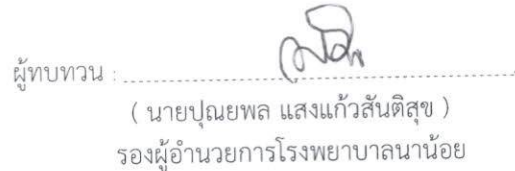 ผู้ทบทวน :
( นายปุณยพล แสงแก้วสันติสุข )
รองผู้อำนวยการโรงพยาบาลนาน้อย